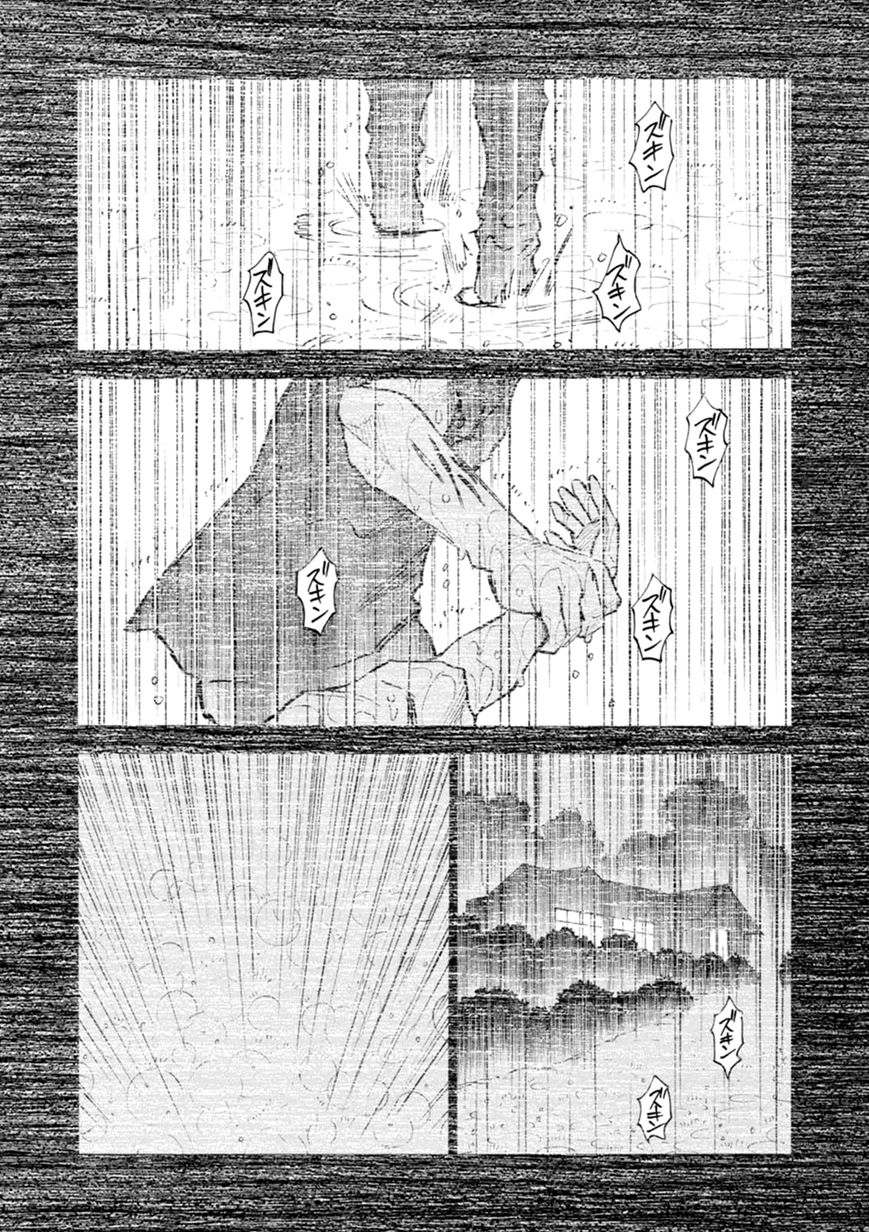 ズキン
ズキン
ズキン
ズキン
ズキン
ズキン
ズキン
ズキン